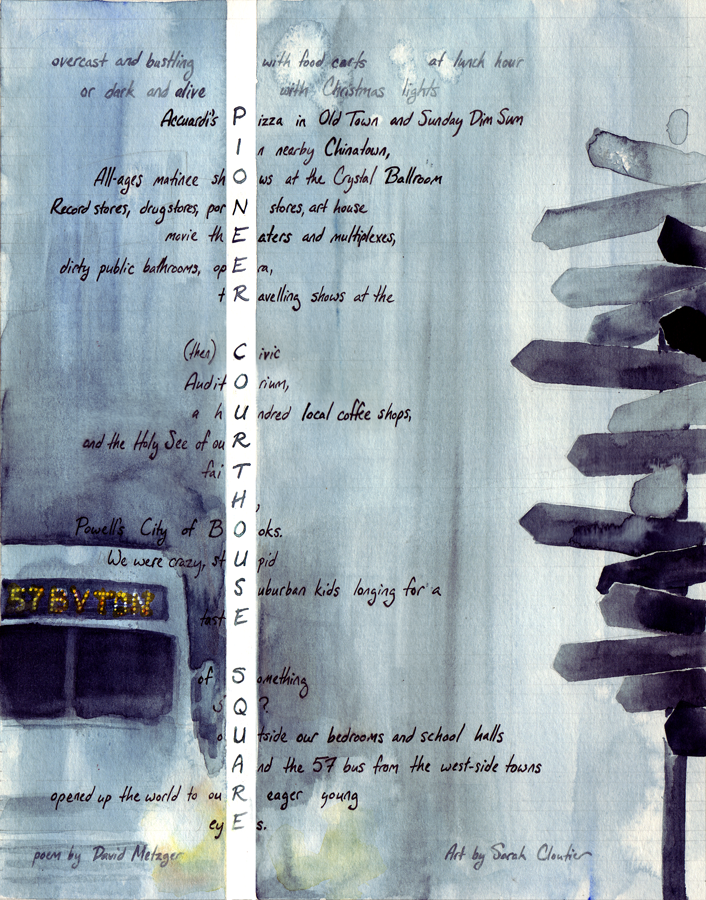 overcast and bustling with food carts at lunch hour
or dark and alive with Christmas lights
Accuardi's PIzza in Old Town and Sunday Dim Sum
In nearby Chinatown,
All-ages matinee shOws at the Crystal Ballroom
Record stores, drugstores, porN stores, art house
movie thEaters and multiplexes,
dirty public bathrooms, opEra,
tRavelling shows at the
(then) Civic
AuditOrium,
a hUndred local coffee shops,
and the Holy See of ouR
faiT
H,
Powell's City of BOoks.
We were crazy, stUpid
Suburban kids longing for a
tastE
57 BVTON
of Something
Q?
oUtside our bedrooms and school halls
And the 57 bus from the west-side towns
opened up the world to ouR eager young
eyEs.
poem by David Metzger
Art by Sarah Cloutier